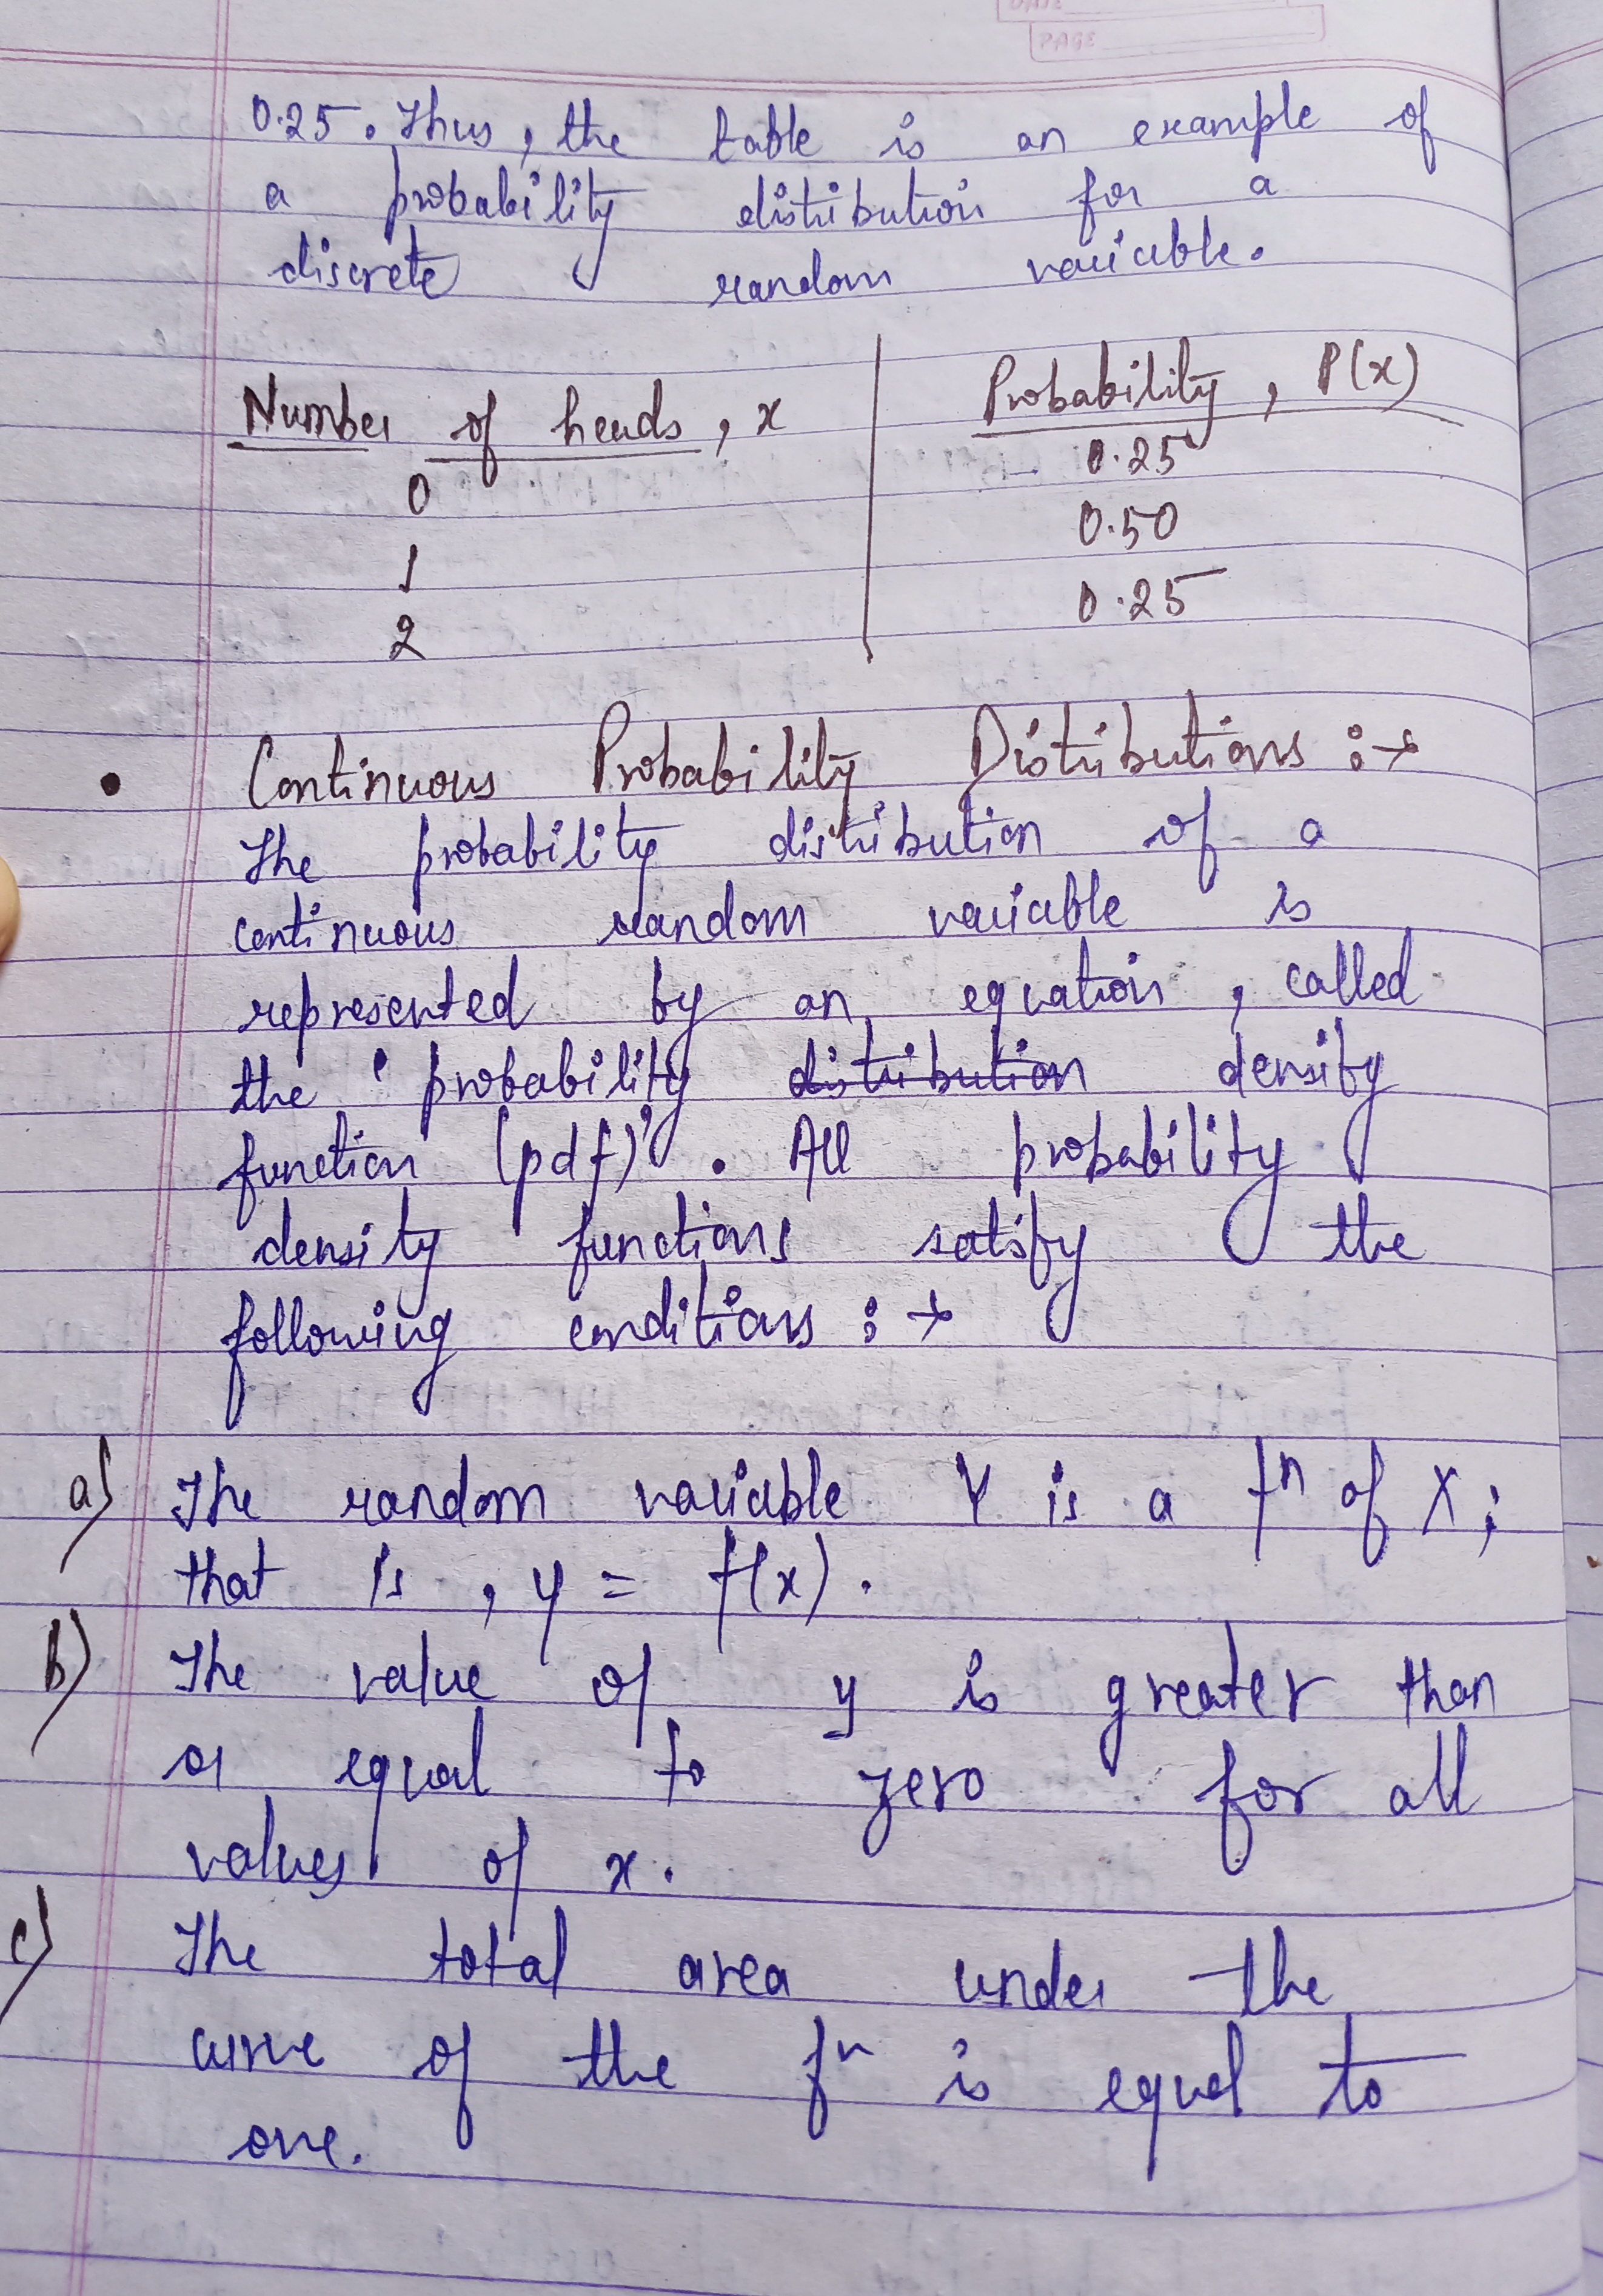 DATE
PAGE
0.25. Thus, the table is an example of
a probability distribution for a
discrete random variable.
Number of heads, x | Probability, P(x)
0 | 0.25
1 | 0.50
2 | 0.25
• Continuous Probability Distributions :→
The probability distribution of a
continuous random variable is
represented by an equation, called
the 'probability ~~distribution~~ density
function (pdf)'. All probability
density functions satisfy the
following conditions :→
a) The random variable Y is a fⁿ of X;
that is, y = f(x).
b) The value of y is greater than
or equal to zero for all
values of x.
c) The total area under the
curve of the fⁿ is equal to
one.